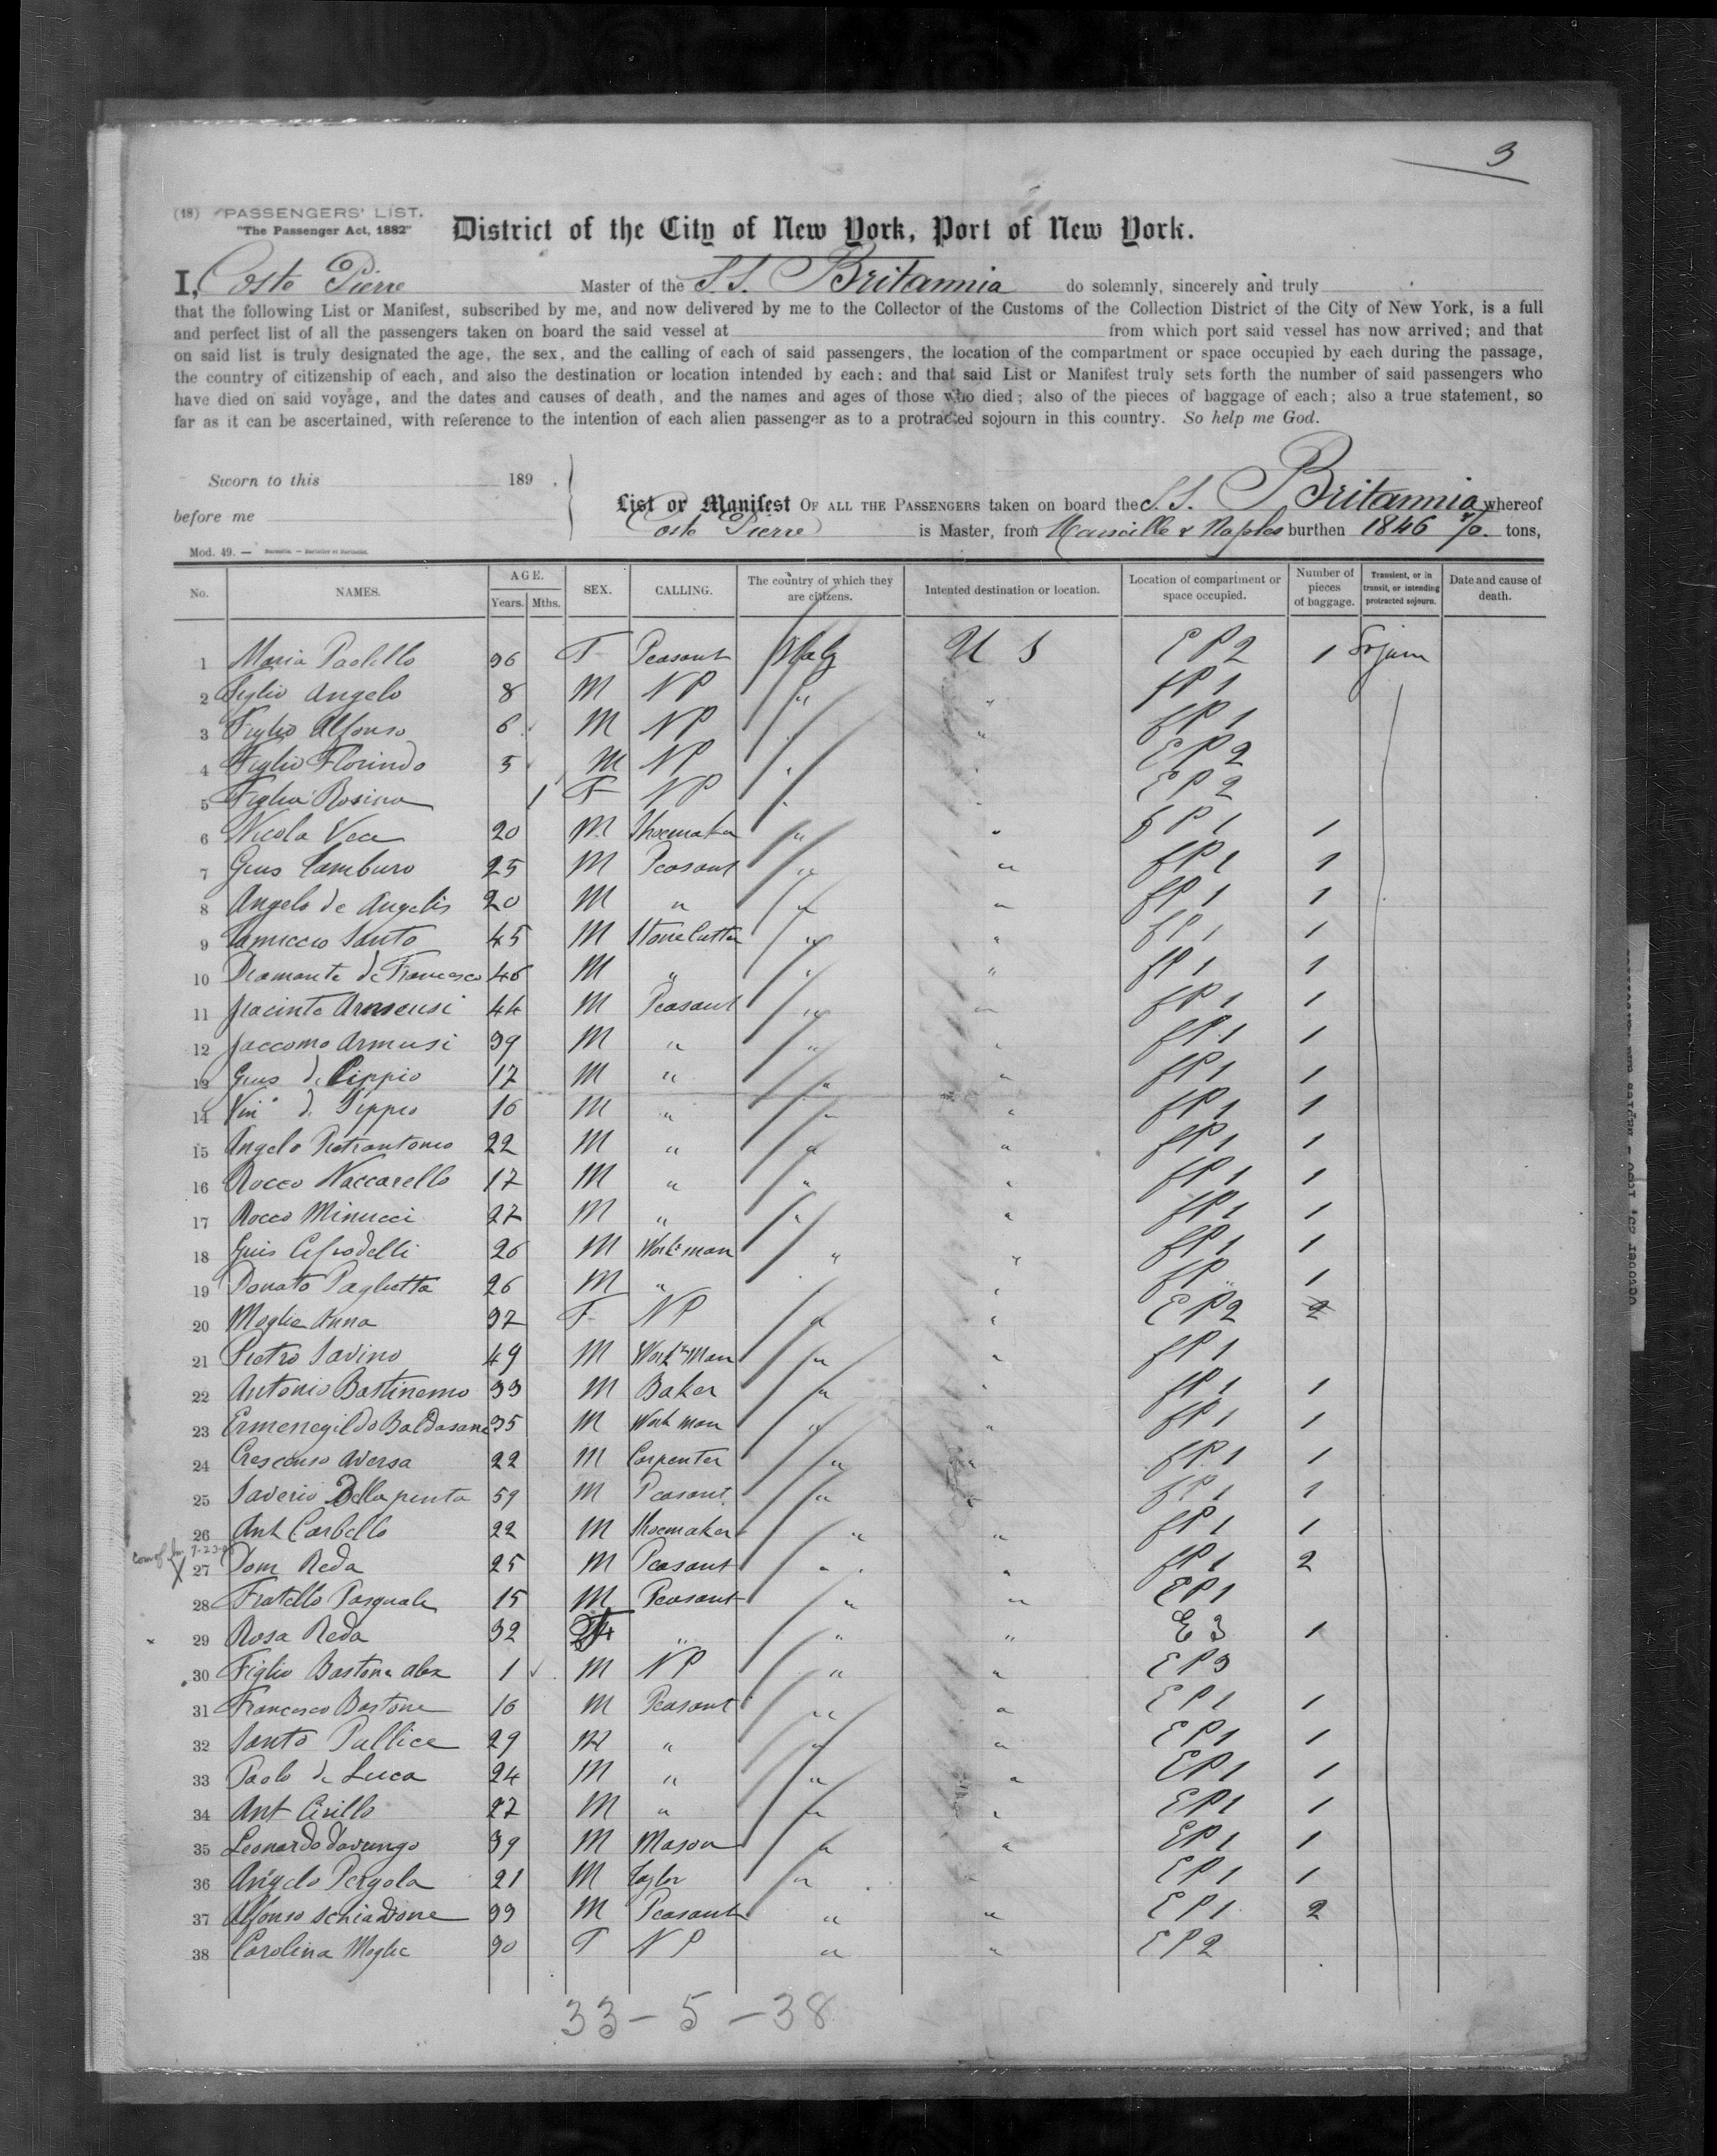 3
(18) PASSENGERS' LIST.
"The Passenger Act, 1882"
District of the City of New York, Port of New York.
I, Coste Pierre Master of the S.S. Britannia do solemnly, sincerely and truly
that the following List or Manifest, subscribed by me, and now delivered by me to the Collector of the Customs of the Collection District of the City of New York, is a full
and perfect list of all the passengers taken on board the said vessel at from which port said vessel has now arrived; and that
on said list is truly designated the age, the sex, and the calling of each of said passengers, the location of the compartment or space occupied by each during the passage,
the country of citizenship of each, and also the destination or location intended by each; and that said List or Manifest truly sets forth the number of said passengers who
have died on said voyage, and the dates and causes of death, and the names and ages of those who died; also of the pieces of baggage of each; also a true statement, so
far as it can be ascertained, with reference to the intention of each alien passenger as to a protracted sojourn in this country. So help me God.
Sworn to this 189 .
before me
List or Manifest OF ALL THE PASSENGERS taken on board the S.S. Britannia whereof
Coste Pierre is Master, from Marseille & Naples burthen 1846 tons,
Mod. 49. —
No. NAMES. AGE. Years. Mths. SEX. CALLING. The country of which they are citizens. Intented destination or location. Location of compartiment or space occupied. Number of pieces of baggage. Transient, or in transit, or intending protracted sojourn. Date and cause of death.
1 Maria Paolillo 36 F Peasant Italy U S E P 2 1 Sojurn
2 Figlio Angelo 8 M NP " " f P 1
3 Figlio Alfonso 6 M NP " " f P 1
4 Figlio Florindo 5 M NP " " E P 2
5 Figlia Rosina 1 F NP " " E P 2
6 Nicola Vece 20 M Shoemaker " " f P 1 1
7 Gius Tamburo 25 M Peasant " " f P 1 1
8 Angelo de Angelis 20 M " " " f P 1 1
9 Iamiccio Santo 45 M Stone Cutter " " f P 1 1
10 Diamante de Francesco 46 M " " " f P 1 1
11 Jiacinto Armeusi 44 M Peasant " " f P 1 1
12 Jaccomo Armusi 39 M " " " f P 1 1
13 Gius di Pippio 17 M " " " f P 1 1
14 Vin° di Pippio 16 M " " " f P 1 1
15 Angelo Pietrantonio 22 M " " " f P 1 1
16 Rocco Naccarello 17 M " " " f P 1 1
17 Rocco Minucci 27 M " " " f P 1 1
18 Guis 26 M Workman " " f P 1 1
19 Donato Paglietta 26 M " " f P " 1
20 Moglie Anna 37 F NP " " E P 2 2
21 Pietro Savino 49 M Workman " " f P 1
22 Antonio Bastinemo 33 M Baker " " f P 1 1
23 Ermenegildo Baldasane 35 M Workman " " f P 1 1
24 Crescenso Aversa 22 M Carpenter " " f P 1 1
25 Saverio Della penta 59 M Peasant " " f P 1 1
26 Ant Carbello 22 M Shoemaker " " f P 1 1
27 Dom Reda 25 M Peasant " " f P 1 2
28 Fratello Pasquale 15 M Peasant " " E P 1
29 Rosa Reda 32 F " " " E 3 1
30 Figlio Bastone Alex 1 M NP " " E P 3
31 Francesco Bastone 16 M Peasant " " E P 1 1
32 Santo Pullice 29 M " " " E P 1 1
33 Paolo de Luca 24 M " " " E P 1 1
34 Ant Cirillo 27 M " " " E P 1 1
35 Leonardo 39 M Mason " " E P 1 1
36 Angelo Pergola 21 M Taylor " " E P 1 1
37 Alfonso Schiadone 33 M Peasant " " E P 1 2
38 Carolina Moglie 30 F NP " " E P 2
33 - 5 - 38